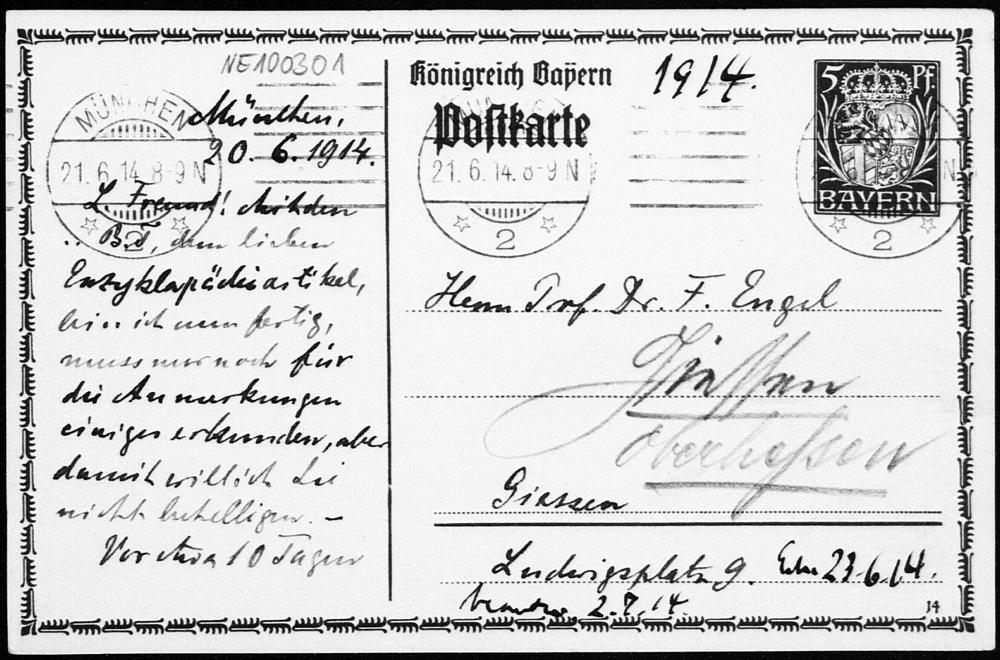 NE100301
München,
20. 6. 1914.
L. Freund! Mit den
B. T., dem lieben
Enzyklopädieartikel,
bin ich nun fertig,
muss nur noch für
die Anmerkungen
einiges erkunden, aber
damit will ich Sie
nicht behelligen. –
Vor etwa 10 Tagen
MÜNCHEN
21. 6. 14 8-9 N
2
Königreich Bayern
Postkarte
1914.
21. 6. 14. 8-9 N
2
5 Pf.
BAYERN
2
Herrn Prof. Dr. F. Engel
Giessen
Oberhessen
Giessen
Ludwigsplatz 9.
Erh. 23.6.14.
beantw. 2.7.14.
14